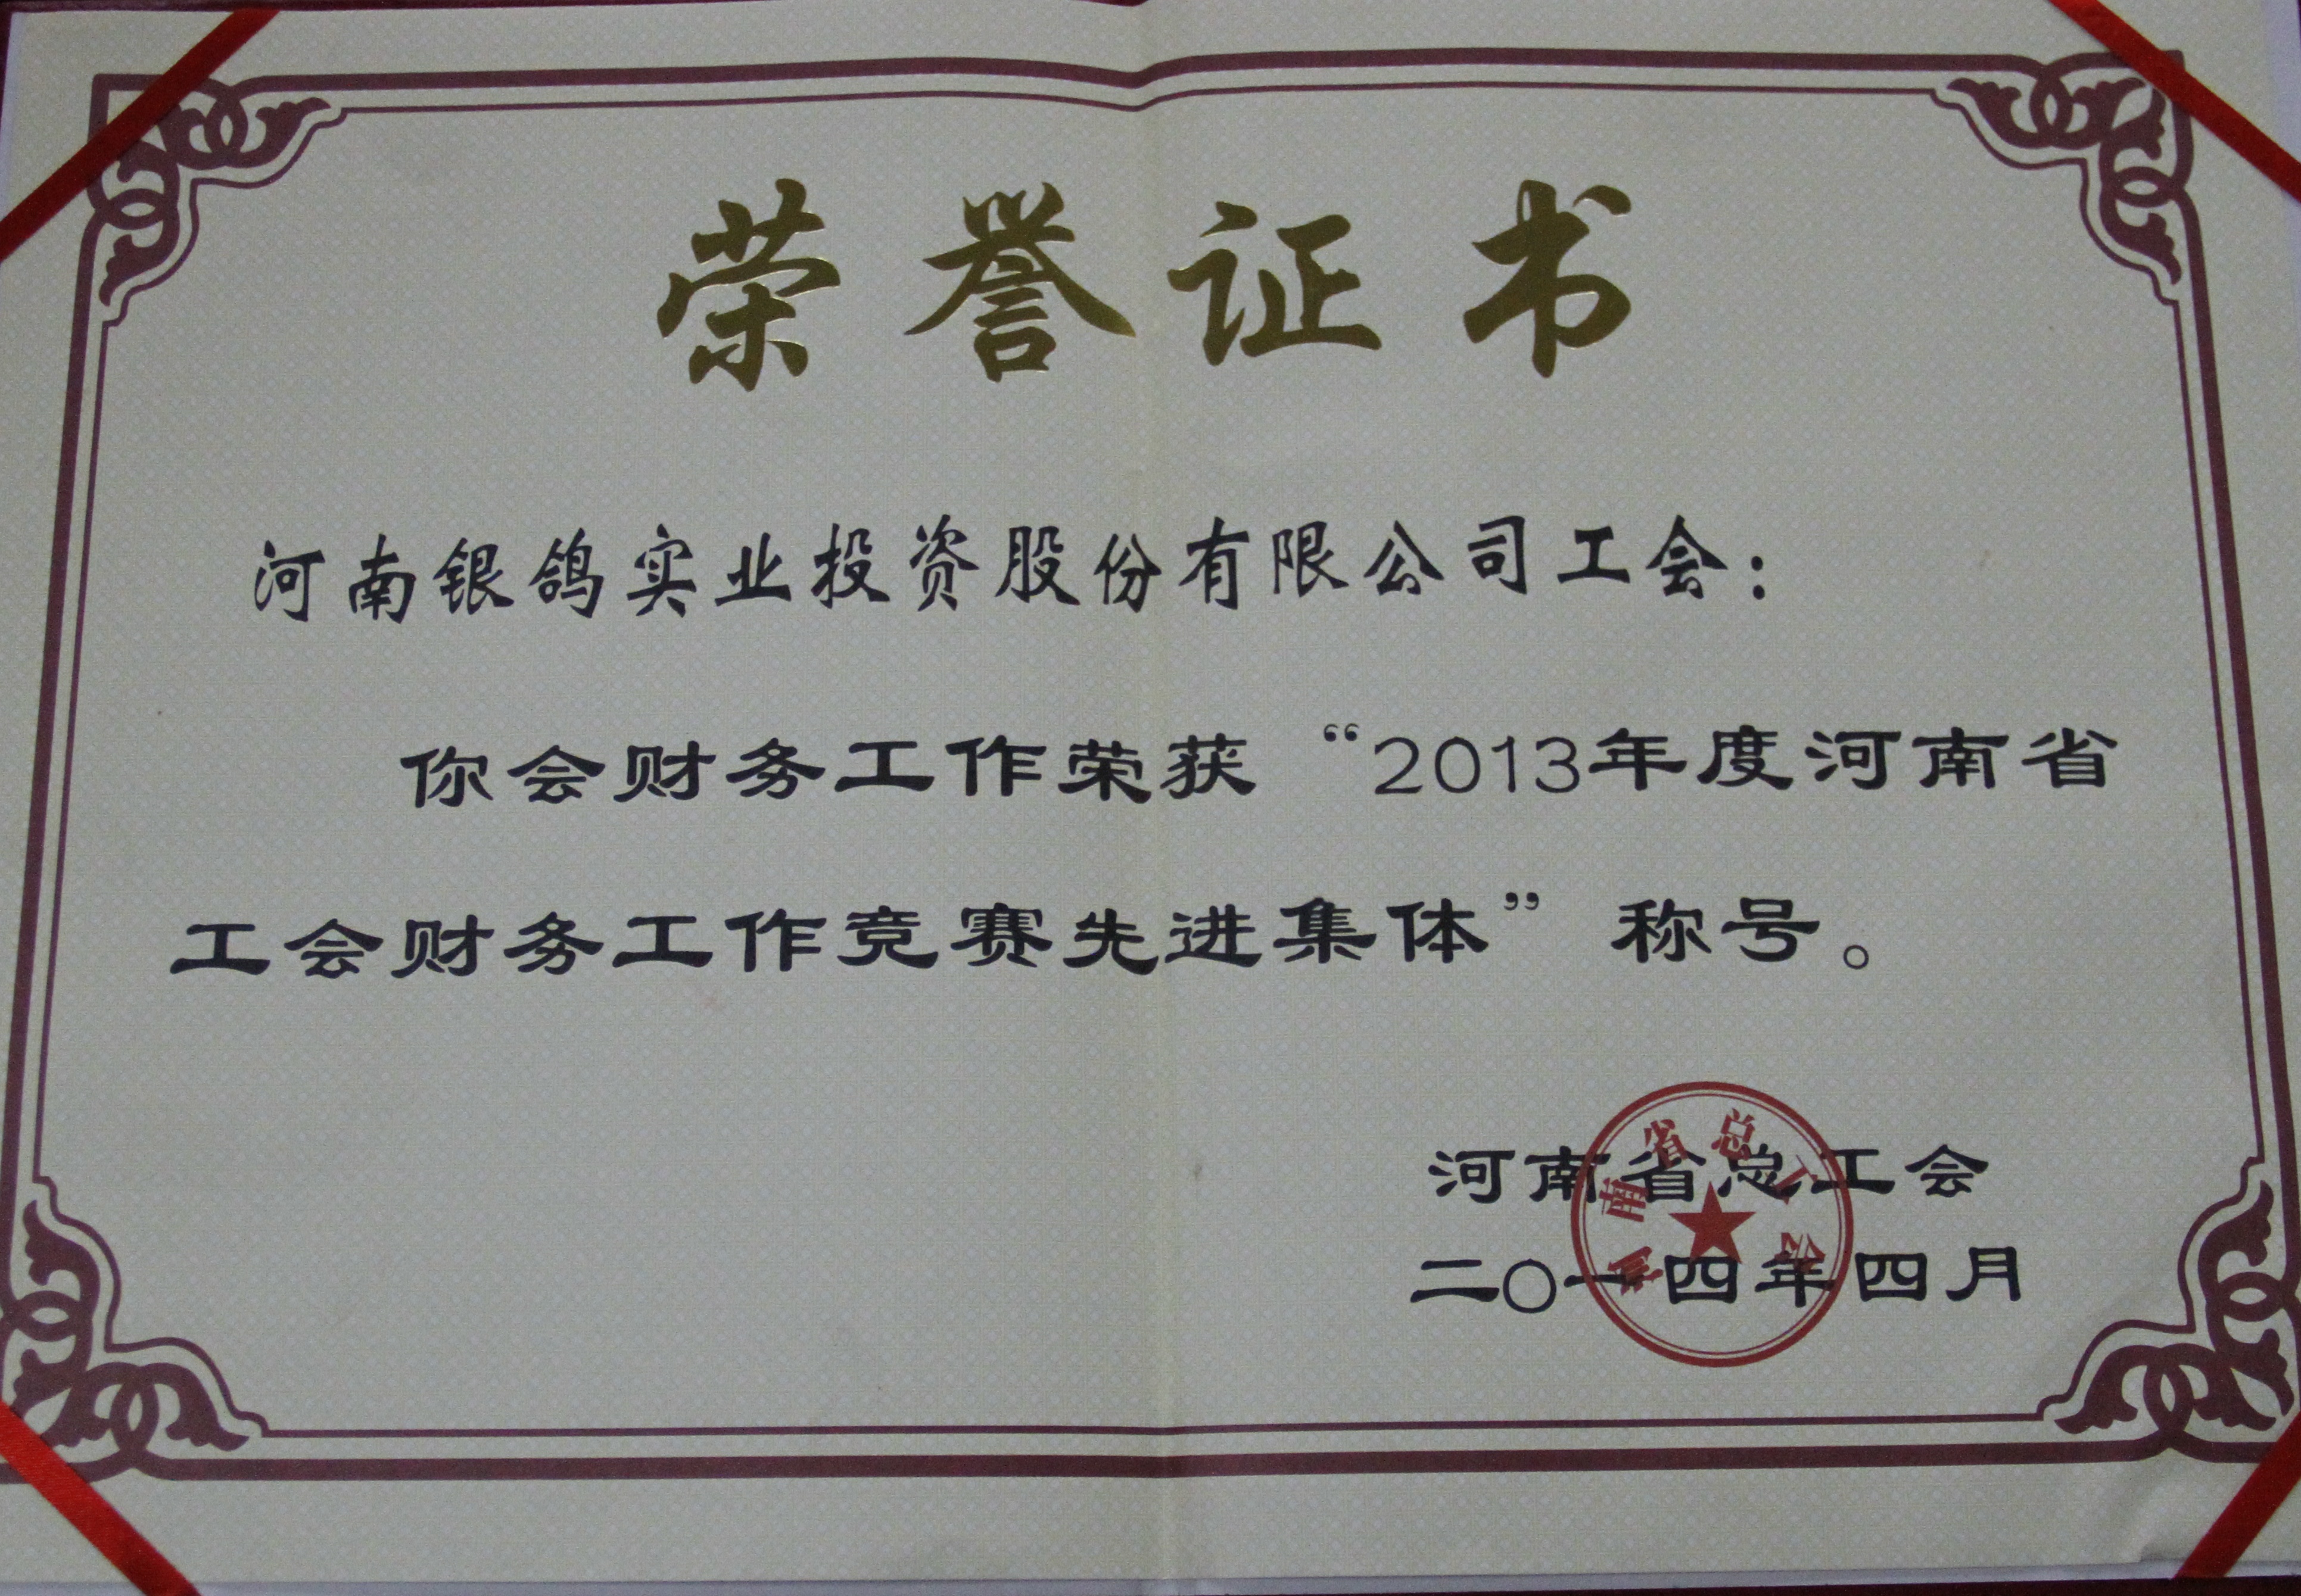 荣誉证书
河南银鸽实业投资股份有限公司工会：
你会财务工作荣获“2013年度河南省
工会财务工作竞赛先进集体”称号。
河南省总工会
河南省总工会
二〇一四年四月